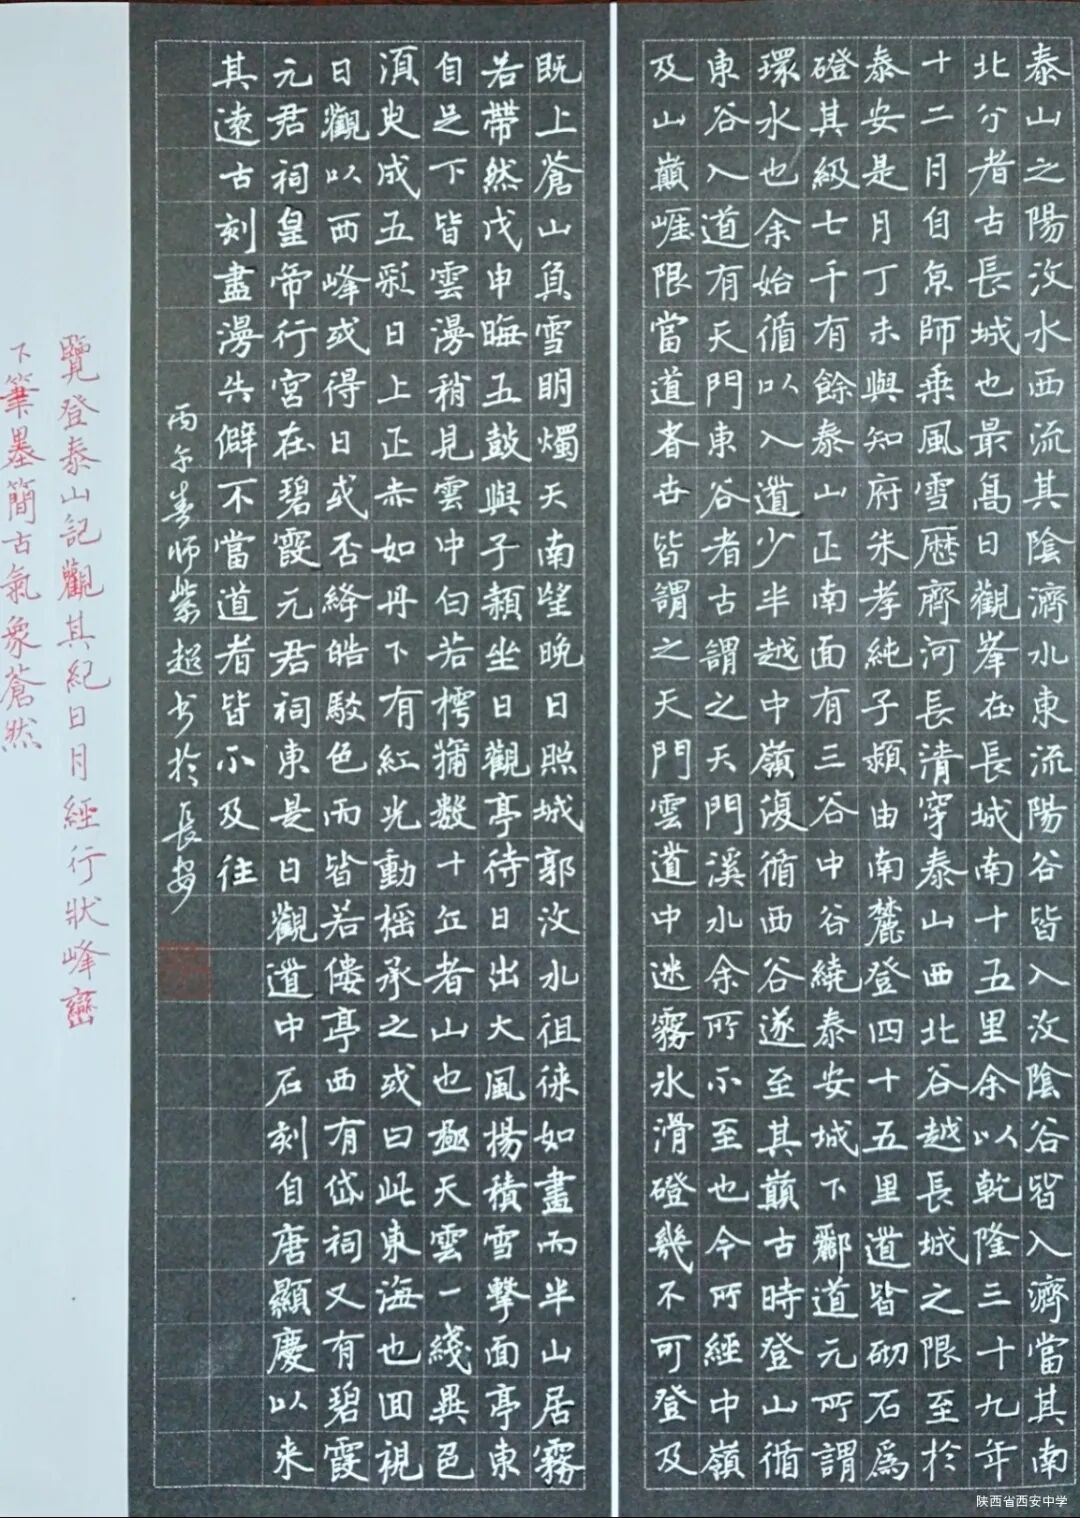 泰山之陽汶水西流其陰濟水東流陽谷皆入汶陰谷皆入濟當其南
北分者古長城也最高日觀峯在長城南十五里余以乾隆三十九年
十二月自京師乘風雪歷齊河長清穿泰山西北谷越長城之限至於
泰安是月丁未與知府朱孝純子潁由南麓登四十五里道皆砌石為
磴其級七千有餘泰山正南面有三谷中谷繞泰安城下酈道元所謂
環水也余始循以入道少半越中嶺復循西谷遂至其巔古時登山循
東谷入道有天門東谷者古謂之天門溪水余所不至也今所經中嶺
及山巔崖限當道者世皆謂之天門雲道中迷霧冰滑磴幾不可登及
既上蒼山負雪明燭天南望晚日照城郭汶水徂徠如畫而半山居霧
若帶然戊申晦五鼓與子潁坐日觀亭待日出大風揚積雪擊面亭東
自足下皆雲漫稍見雲中白若樗蒱數十立者山也極天雲一綫異色
須臾成五彩日上正赤如丹下有紅光動搖承之或曰此東海也回視
日觀以西峰或得日或否絳皓駁色而皆若僂亭西有岱祠又有碧霞
元君祠皇帝行宮在碧霞元君祠東是日觀道中石刻自唐顯慶以来
其遠古刻盡漫失僻不當道者皆不及往
丙午春師紫超书於長安
覽登泰山記觀其紀日月經行狀峰巒
下筆墨簡古氣象蒼然
陕西省西安中学